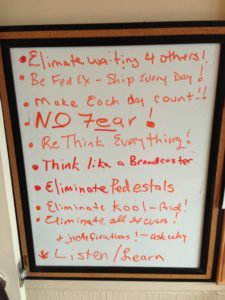 • Elimate waiting 4 others!
• Be Fed Ex - Ship Every Day!
• Make Each day count!!
• NO Fear!
• ReThink Everything!
• Think like a Broadcaster
• Eliminate Pedestals
• Eliminate Kool-Aid!
• Eliminate all excuses!
+ justifications! - ask why
* Listen/Learn